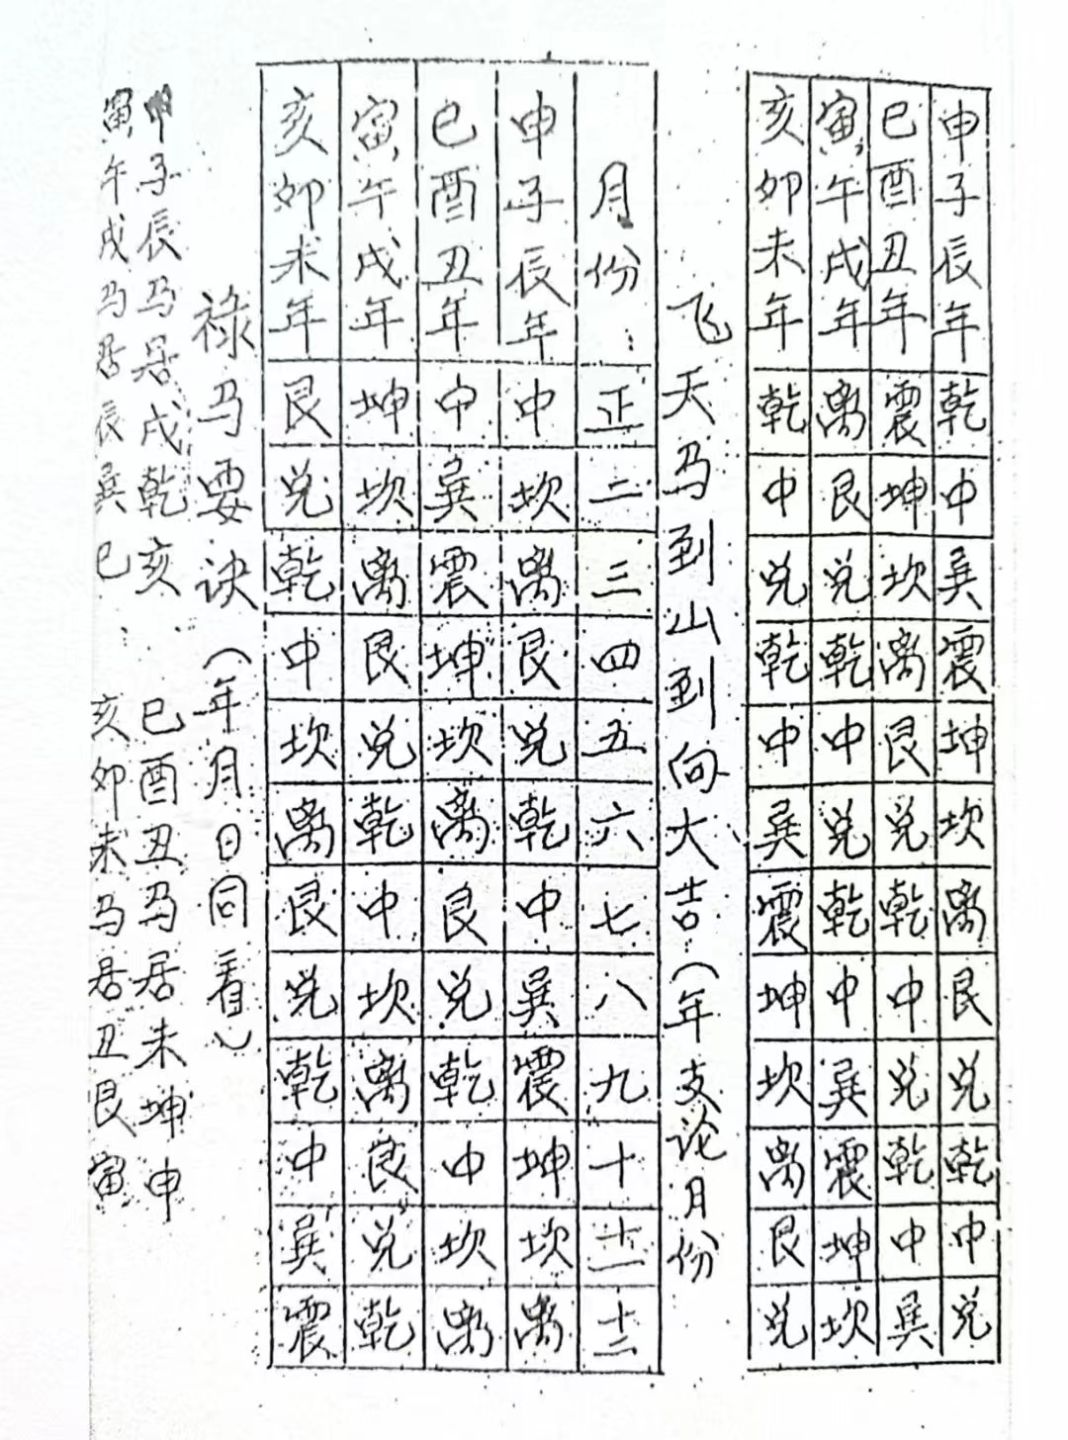 申子辰年 乾 中 巽 震 坤 坎 离 艮 兑 乾 中 兑
巳酉丑年 震 坤 坎 离 艮 兑 乾 中 兑 乾 中 巽
寅午戌年 离 艮 兑 乾 中 兑 乾 中 巽 震 坤 坎
亥卯未年 乾 中 兑 乾 中 巽 震 坤 坎 离 艮 兑
飞天马到山到向大吉(年支论月份
月份: 正 二 三 四 五 六 七 八 九 十 十一 十二
申子辰年 中 坎 离 艮 兑 乾 中 巽 震 坤 坎 离
巳酉丑年 中 巽 震 坤 坎 离 艮 兑 乾 中 坎 离
寅午戌年 坤 坎 离 艮 兑 乾 中 坎 离 艮 兑 乾
亥卯未年 艮 兑 乾 中 坎 离 艮 兑 乾 中 巽 震
禄马要诀(年月日同看)
申子辰马居戌乾亥 巳酉丑马居未坤申
寅午戌马居辰巽巳 亥卯未马居丑艮寅